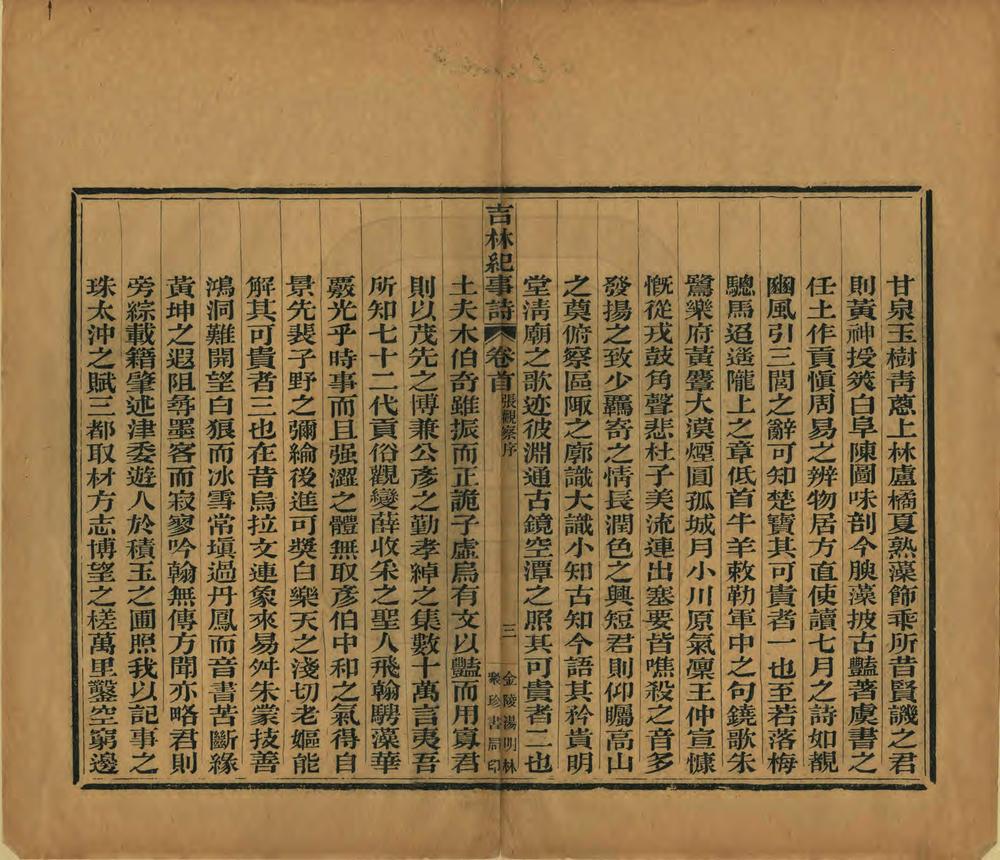 甘泉玉樹靑蔥上林盧橘夏熟藻飾乖所昔賢譏之君
則黃神授筴白阜陳圖味剖今腴藻披古豔著虞書之
任土作貢愼周易之辨物居方直使讀七月之詩如覩
豳風引三閭之辭可知楚寶其可貴者一也至若落梅
驄馬迢遞隴上之章低首牛羊敕勒軍中之句鐃歌朱
鷺樂府黃麞大漠煙圓孤城月小川原氣凜王仲宣慷
慨從戎鼓角聲悲杜子美流連出塞要皆噍殺之音多
發揚之致少羈寄之情長潤色之興短君則仰矚高山
之奠俯察區陬之廓識大識小知古知今語其矜貴明
堂淸廟之歌迹彼淵通古鏡空潭之照其可貴者二也
吉林紀事詩 卷首 張觀察序 三 金陵湯明林聚珍書局印
土夫木伯奇雖振而正詭子虛烏有文以豔而用寡君
則以茂先之博兼公彥之勤孝綽之集數十萬言夷吾
所知七十二代貢俗觀變薛收釆之聖人飛翰騁藻華
覈光乎時事而且强澀之體無取彥伯中和之氣得自
景先裴子野之彌綸後進可獎白樂天之淺切老嫗能
解其可貴者三也在昔烏拉文連象來易舛朱蒙技善
鴻洞難開望白狼而冰雪常塡過丹鳳而音書苦斷緣
黃坤之遐阻尋墨客而寂寥吟翰無傳方聞亦略君則
旁綜載籍肇述津委遊人於積玉之圃照我以記事之
珠太沖之賦三都取材方志博望之槎萬里鑿空窮邊